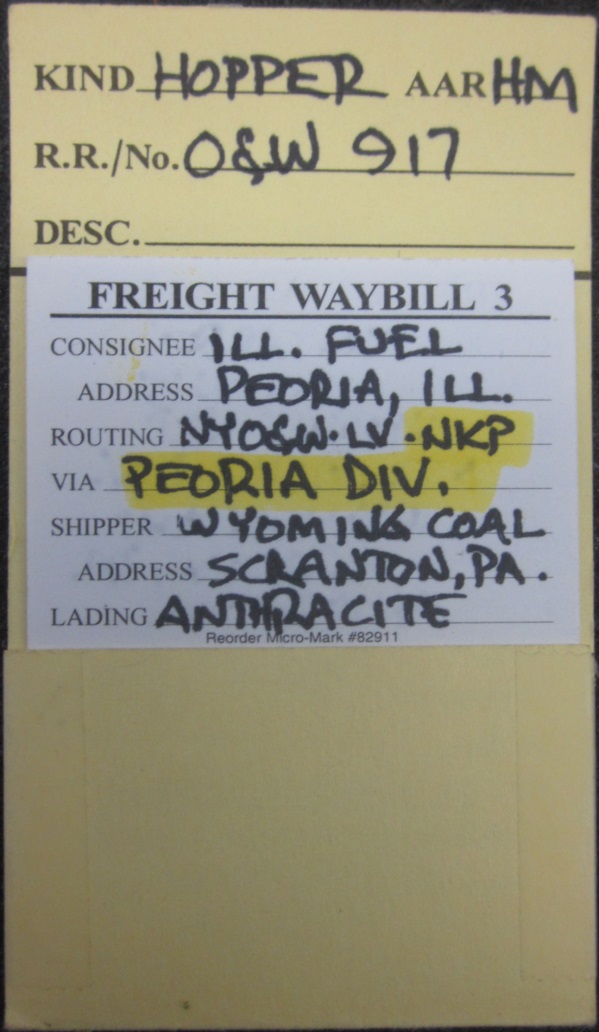 KIND HOPPER AAR HM
R.R./No. O&W 917
DESC.
FREIGHT WAYBILL 3
CONSIGNEE ILL. FUEL
ADDRESS PEORIA, ILL.
ROUTING NYO&W·LV·NKP
VIA PEORIA DIV.
SHIPPER WYOMING COAL
ADDRESS SCRANTON, PA.
LADING ANTHRACITE
Reorder Micro-Mark #82911